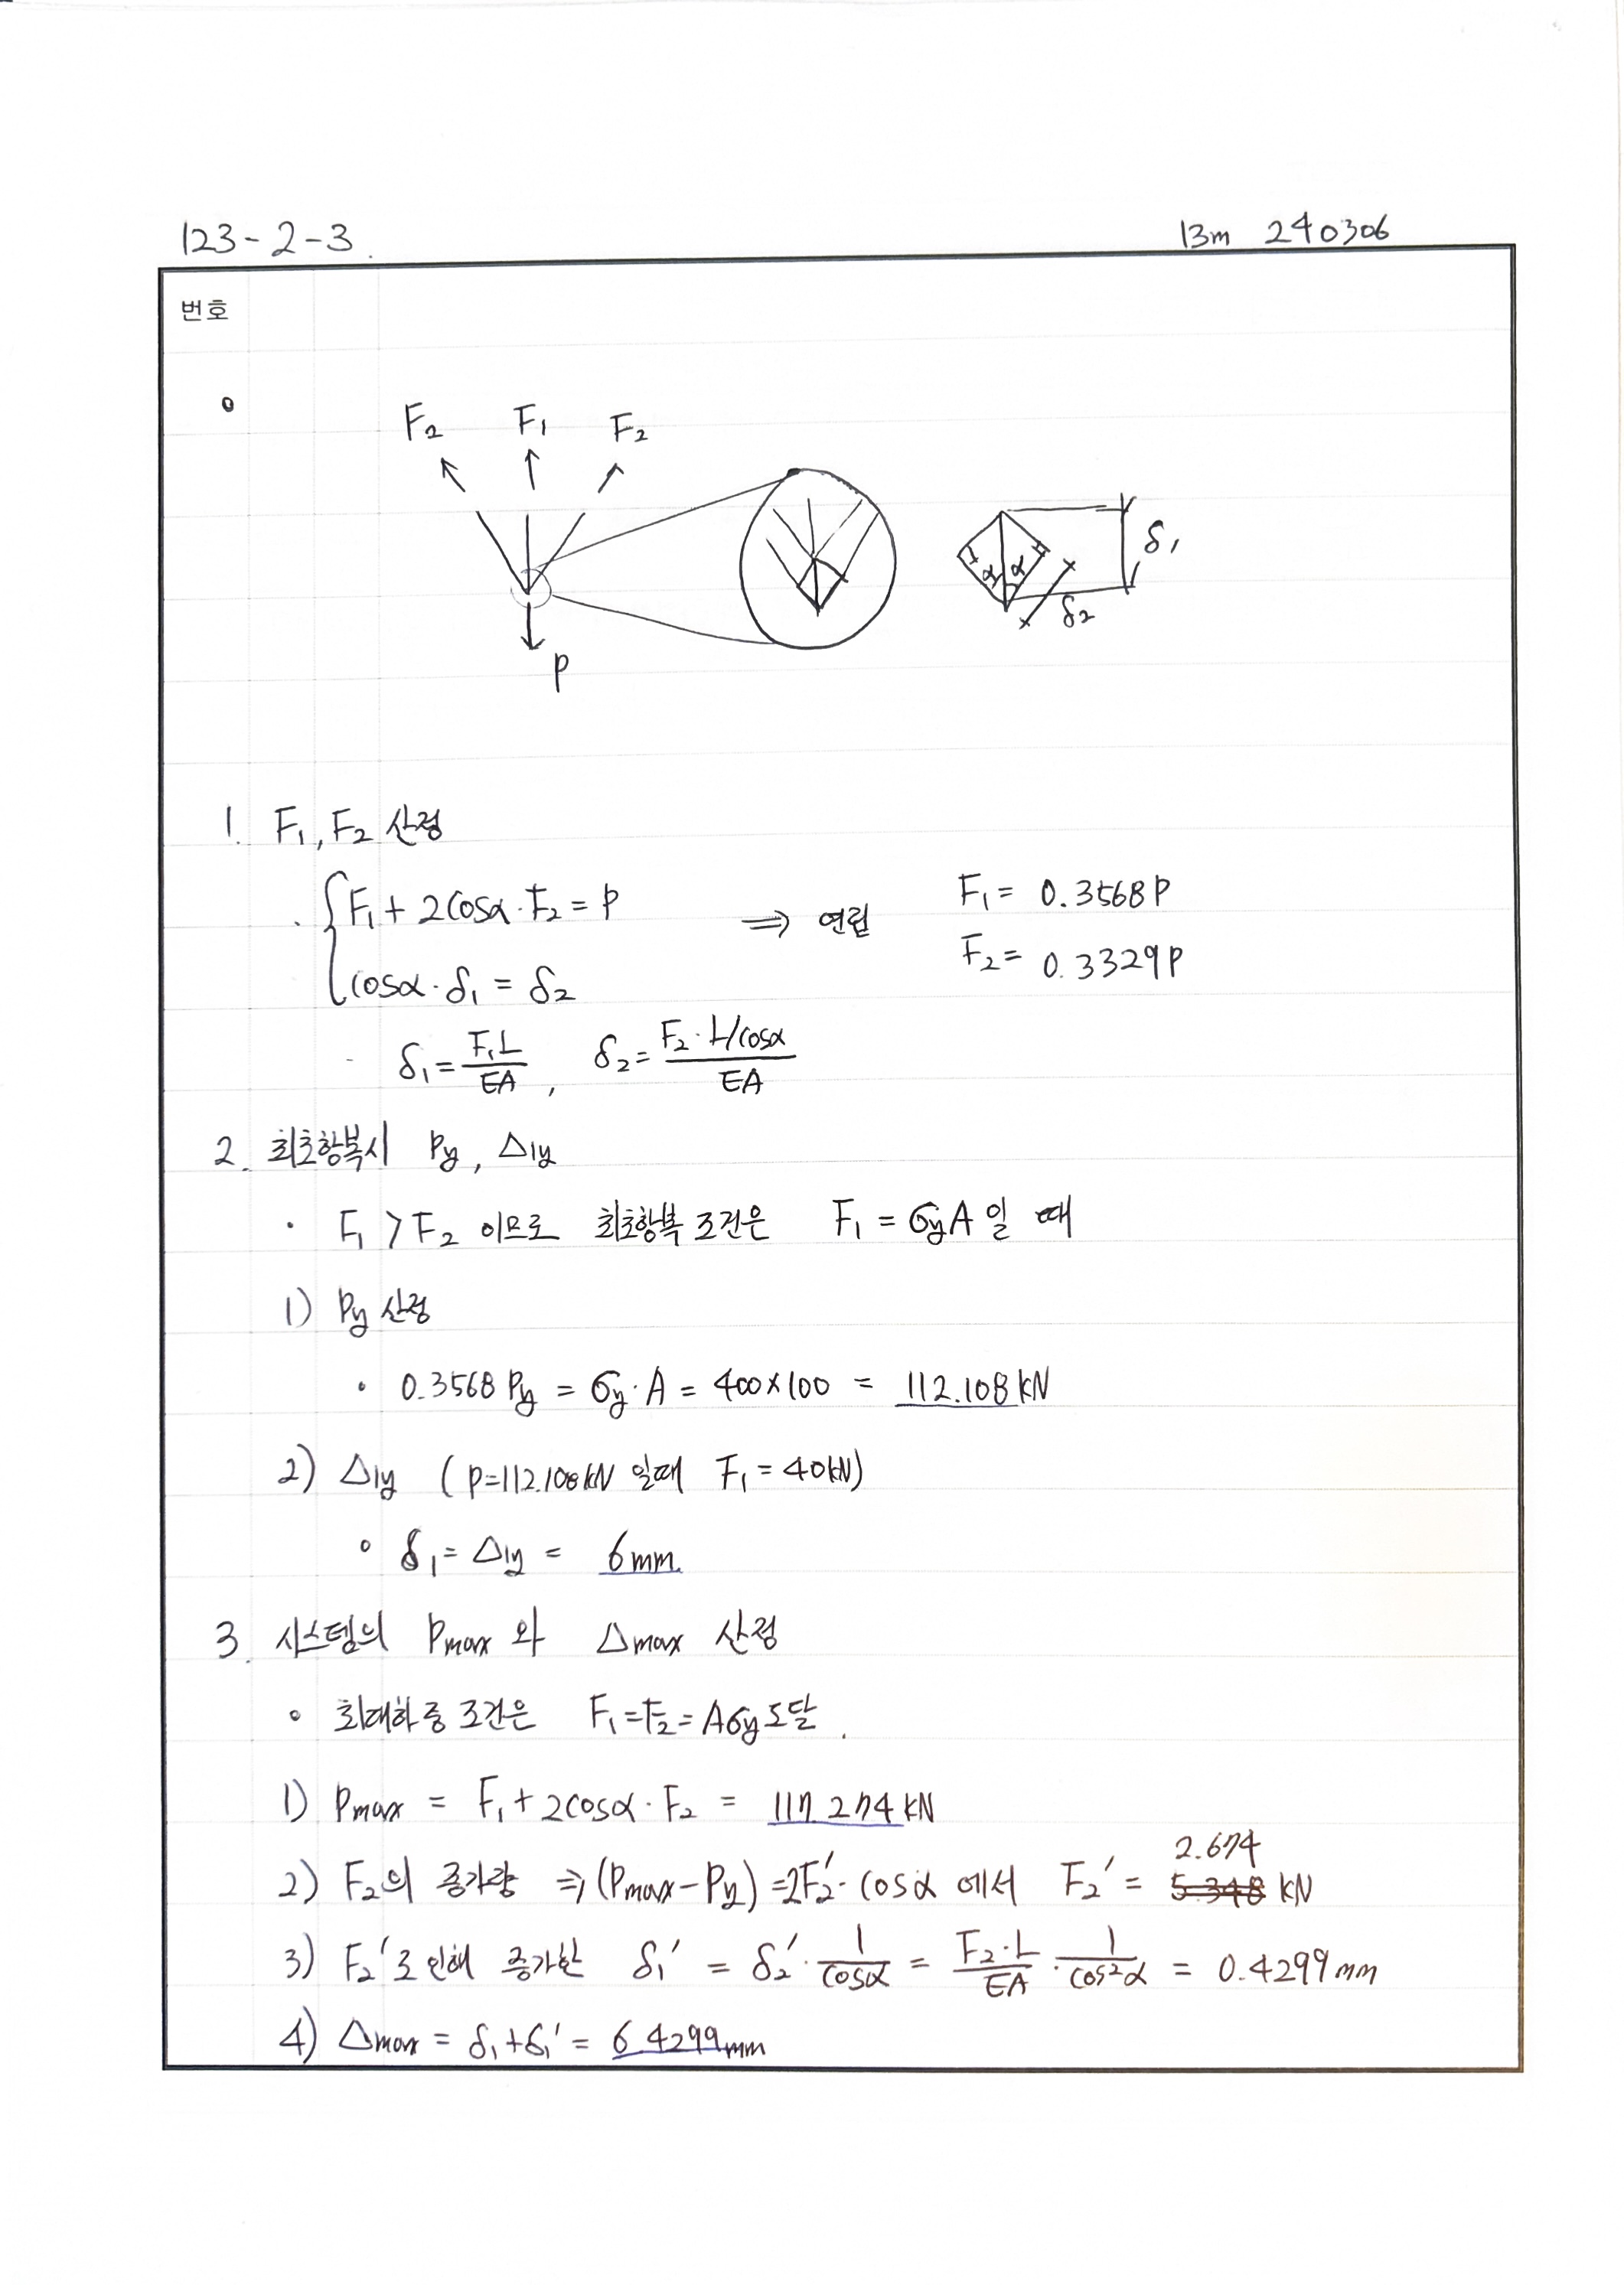 123-2-3.
13m 240306
번호
F₂ F₁ F₂
P
α α δ₁
δ₂
1. F₁, F₂ 산정
F₁ + 2cosα·F₂ = P ⇒ 연립 F₁ = 0.3568P
cosα·δ₁ = δ₂ F₂ = 0.3329P
δ₁ = F₁L/EA , δ₂ = F₂·L/cosα / EA
2. 최초항복시 Py, Δ1y
· F₁ > F₂ 이므로 최초항복 조건은 F₁ = σyA 일 때
1) Py 산정
· 0.3568 Py = σy·A = 400×100 = 112.108 kN
2) Δ1y ( P=112.108kN 일때 F₁ = 40kN)
· δ₁ = Δ1y = 6mm.
3. 시스템의 Pmax 와 Δmax 산정
· 최대하중 조건은 F₁=F₂=Aσy 도달.
1) Pmax = F₁ + 2cosα·F₂ = 117.274 kN
2.674
2) F₂의 증가량 ⇒ (Pmax-Py) = 2F₂′·cosα 에서 F₂′ = 5.348 kN
3) F₂′로 인해 증가한 δ₁′ = δ₂′·1/cosα = F₂·L/EA·1/cos²α = 0.4299mm
4) Δmax = δ₁+δ₁′ = 6.4299mm